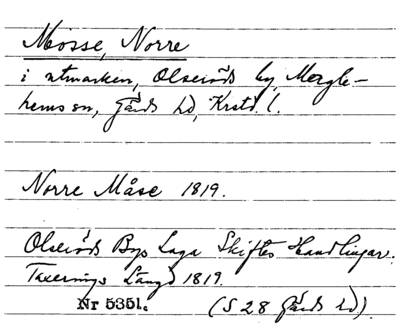 Mosse, Norre
i utmarken, Olseröds by, Mægle-
hems sn, Gärds hd, Krstd. l.
Norre Måse 1819.
Olseröds Bys Laga Skiftes Handlingar.
Taxerings Längd 1819.
Nr 5351.
(S 28 Gärds hd).